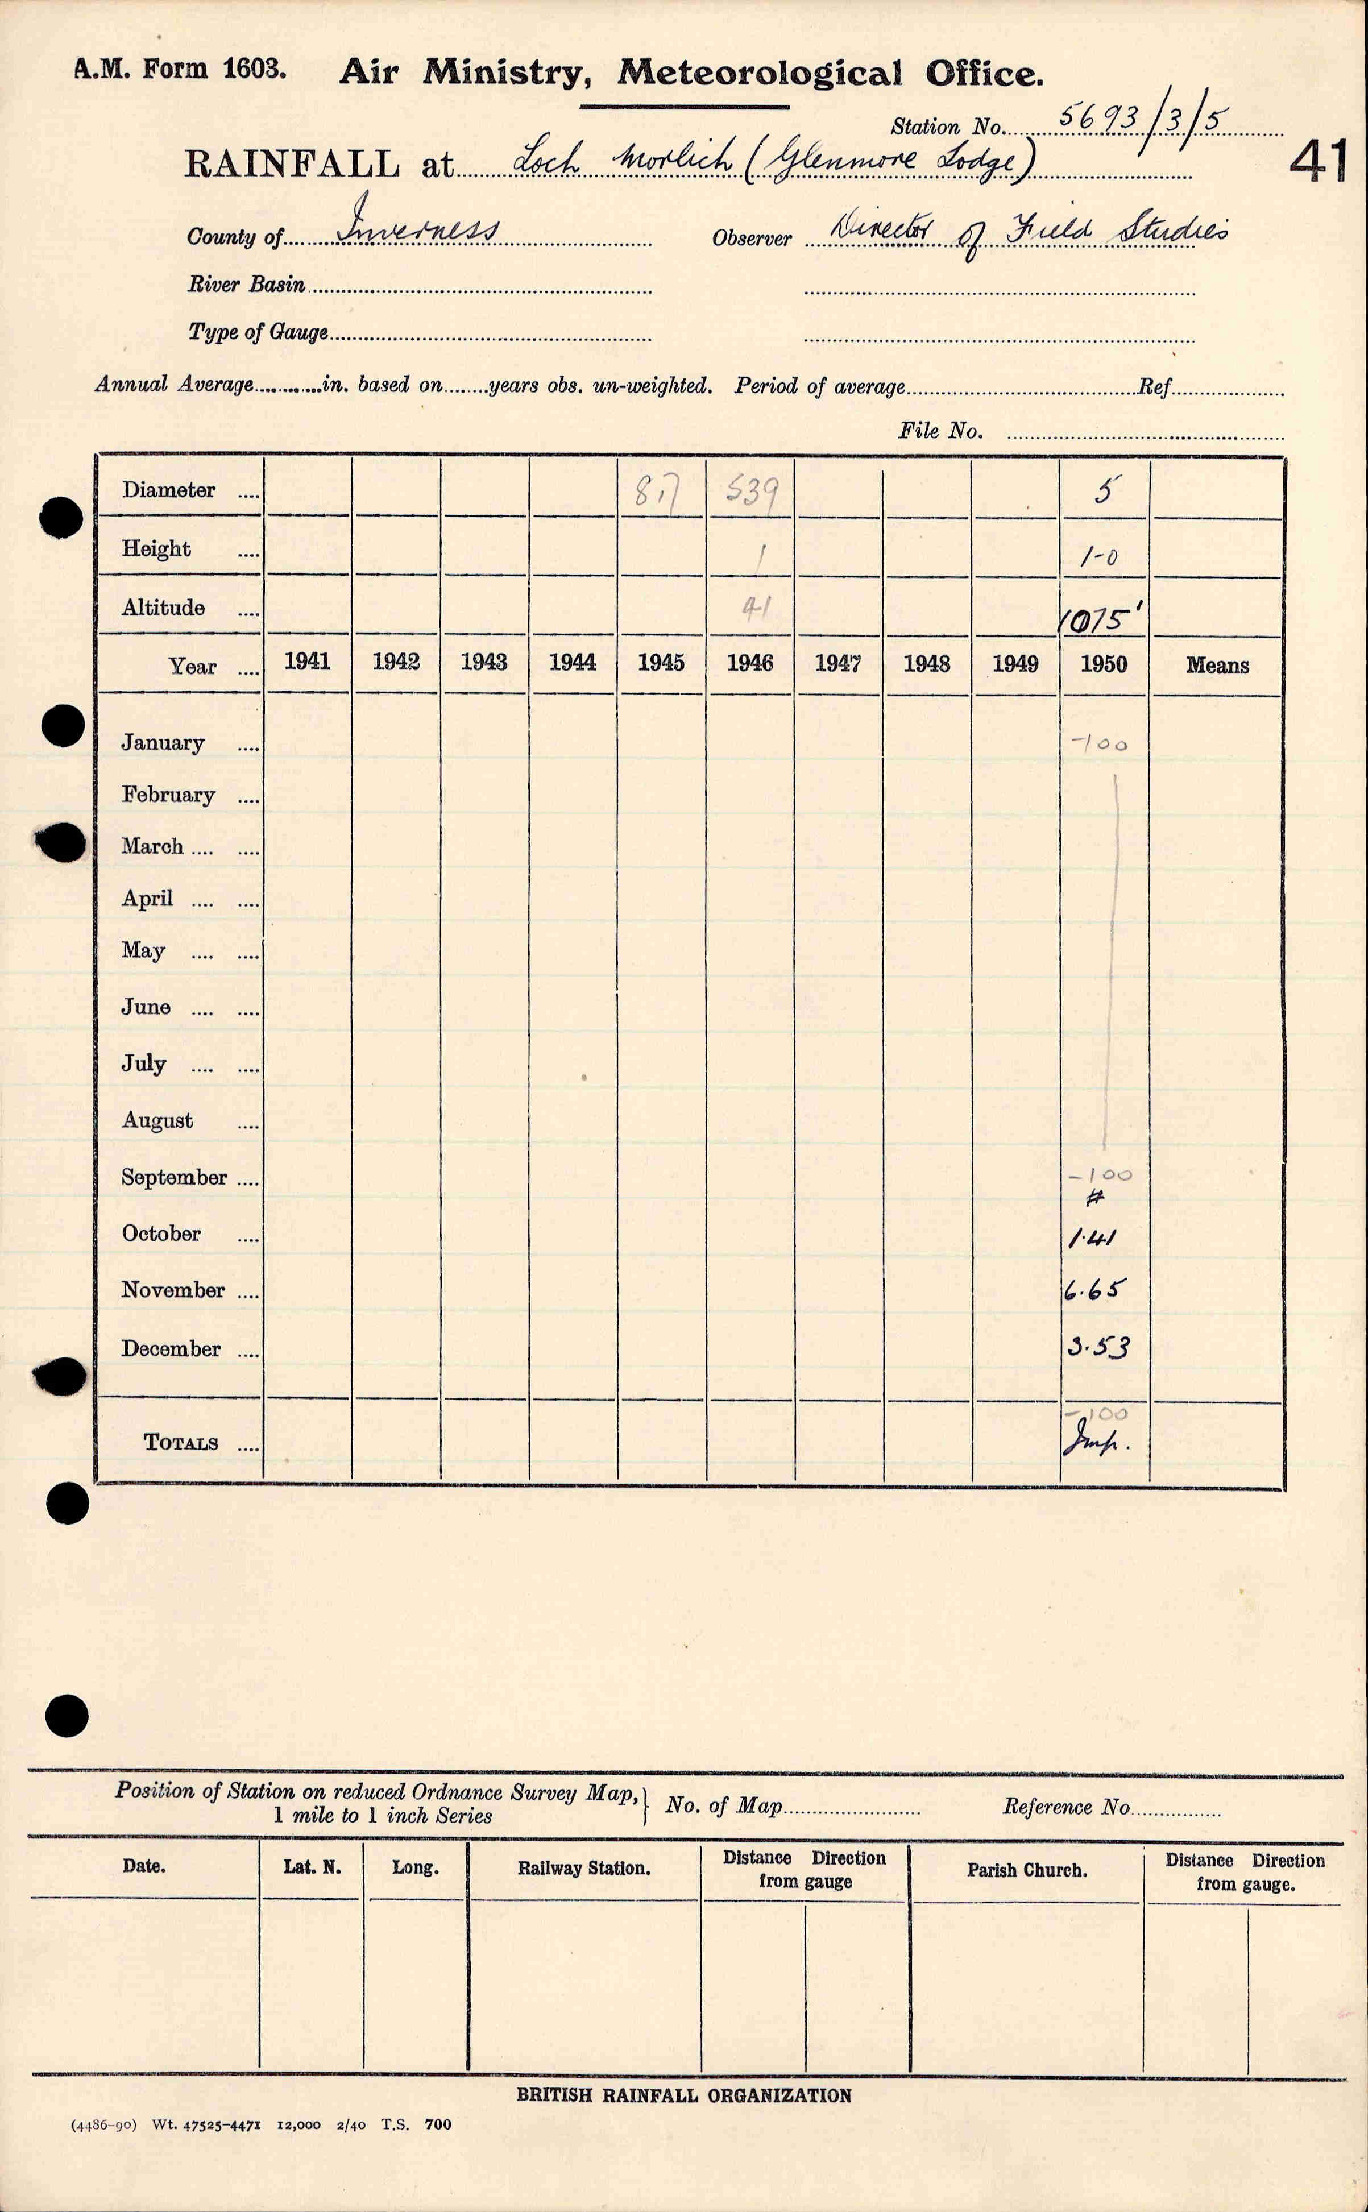 A.M. Form 1603. Air Ministry, Meteorological Office.
Station No. 5693/3/5
RAINFALL at Loch Morlich (Glenmore Lodge)
41
County of Inverness Observer Director of Field Studies
River Basin
Type of Gauge
Annual Average in. based on years obs. un-weighted. Period of average Ref
File No.
Diameter .... 8,7 539 5
Height .... 1 1-0
Altitude .... 41 1075'
Year .... 1941 1942 1943 1944 1945 1946 1947 1948 1949 1950 Means
January .... -100
February ....
March .... ....
April .... ....
May .... ....
June .... ....
July .... ....
August ....
September .... -100
#
October .... 1.41
November .... 6.65
December .... 3.53
-100
TOTALS .... Imp.
Position of Station on reduced Ordnance Survey Map, } No. of Map Reference No.
1 mile to 1 inch Series
Date. Lat. N. Long. Railway Station. Distance Direction from gauge Parish Church. Distance Direction from gauge.
BRITISH RAINFALL ORGANIZATION
(4486-90) Wt. 47525-4471 12,000 2/40 T.S. 700